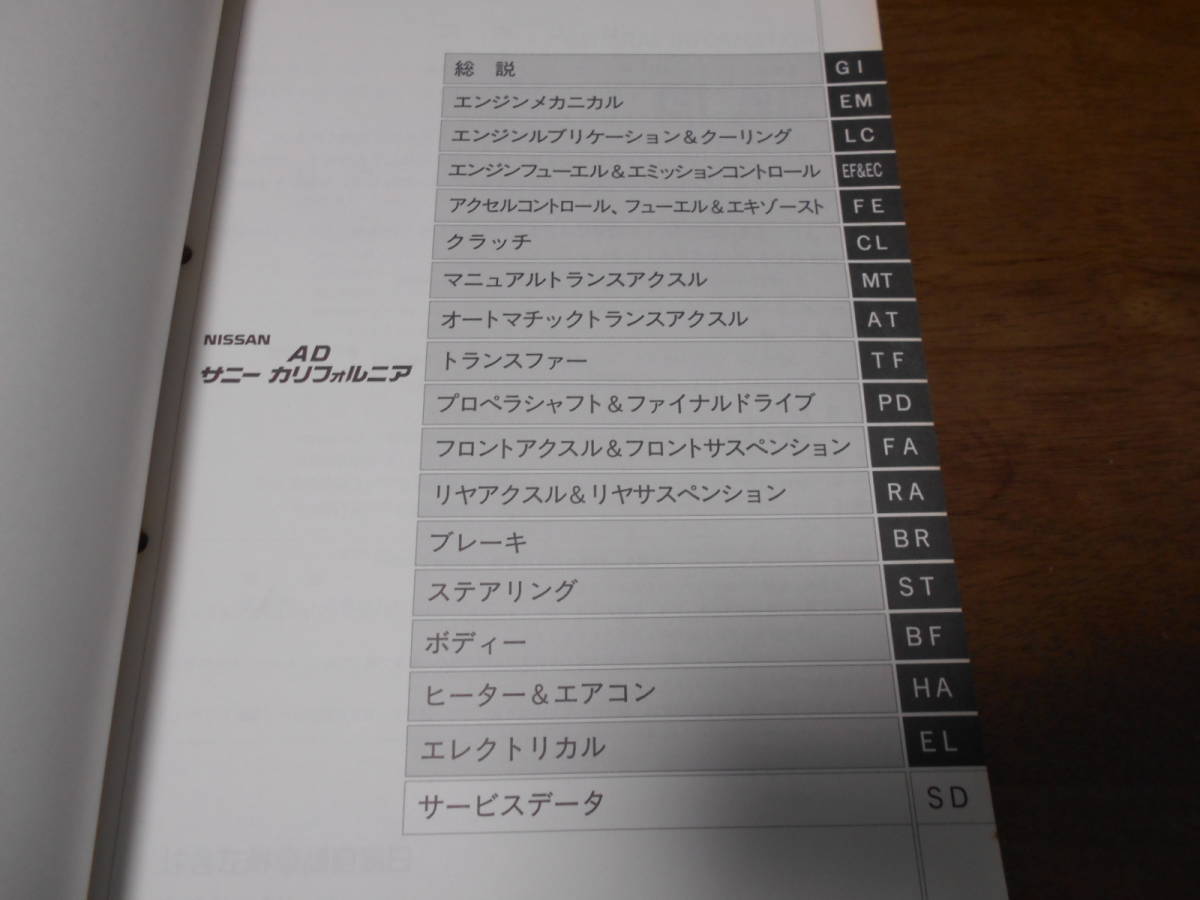 NISSAN
AD
サニー カリフォルニア
総 説 GI
エンジンメカニカル EM
エンジンルブリケーション&クーリング LC
エンジンフューエル&エミッションコントロール EF&EC
アクセルコントロール、フューエル&エキゾースト FE
クラッチ CL
マニュアルトランスアクスル MT
オートマチックトランスアクスル AT
トランスファー TF
プロペラシャフト&ファイナルドライブ PD
フロントアクスル&フロントサスペンション FA
リヤアクスル&リヤサスペンション RA
ブレーキ BR
ステアリング ST
ボディー BF
ヒーター&エアコン HA
エレクトリカル EL
サービスデータ SD